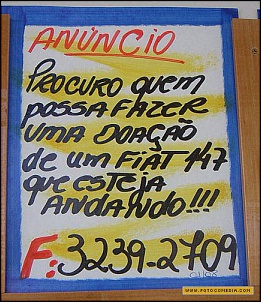 ANÚNCIO
PROCURO QUEM
POSSA FAZER
UMA DOAÇÃO
de um FIAT 147
QUE ESTEJA
ANDANDO!!!
F: 3239-2709
WWW.FOTOCOMEDIA.COM